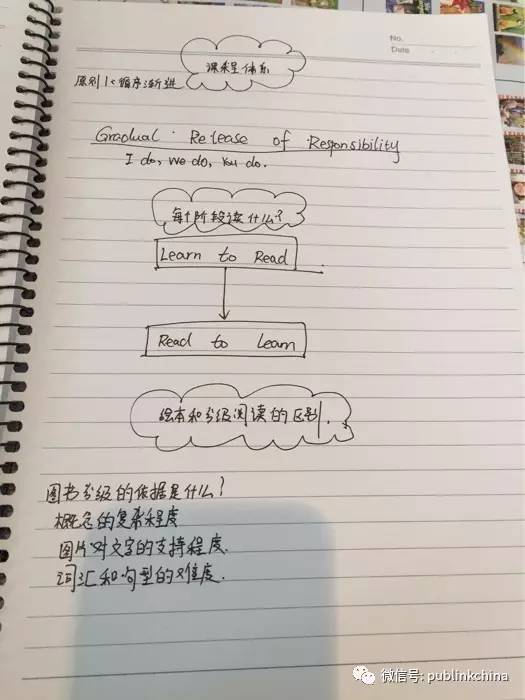 No.
Date
课程体系
原则1:循序渐进
Gradual Release of Responsibility
I do, we do, You do.
每个阶段读什么?
Learn to Read
Read to Learn
绘本和分级阅读的区别.
图书分级的依据是什么?
概念的复杂程度
图片对文字的支持程度.
词汇和句型的难度.
微信号: publinkchina